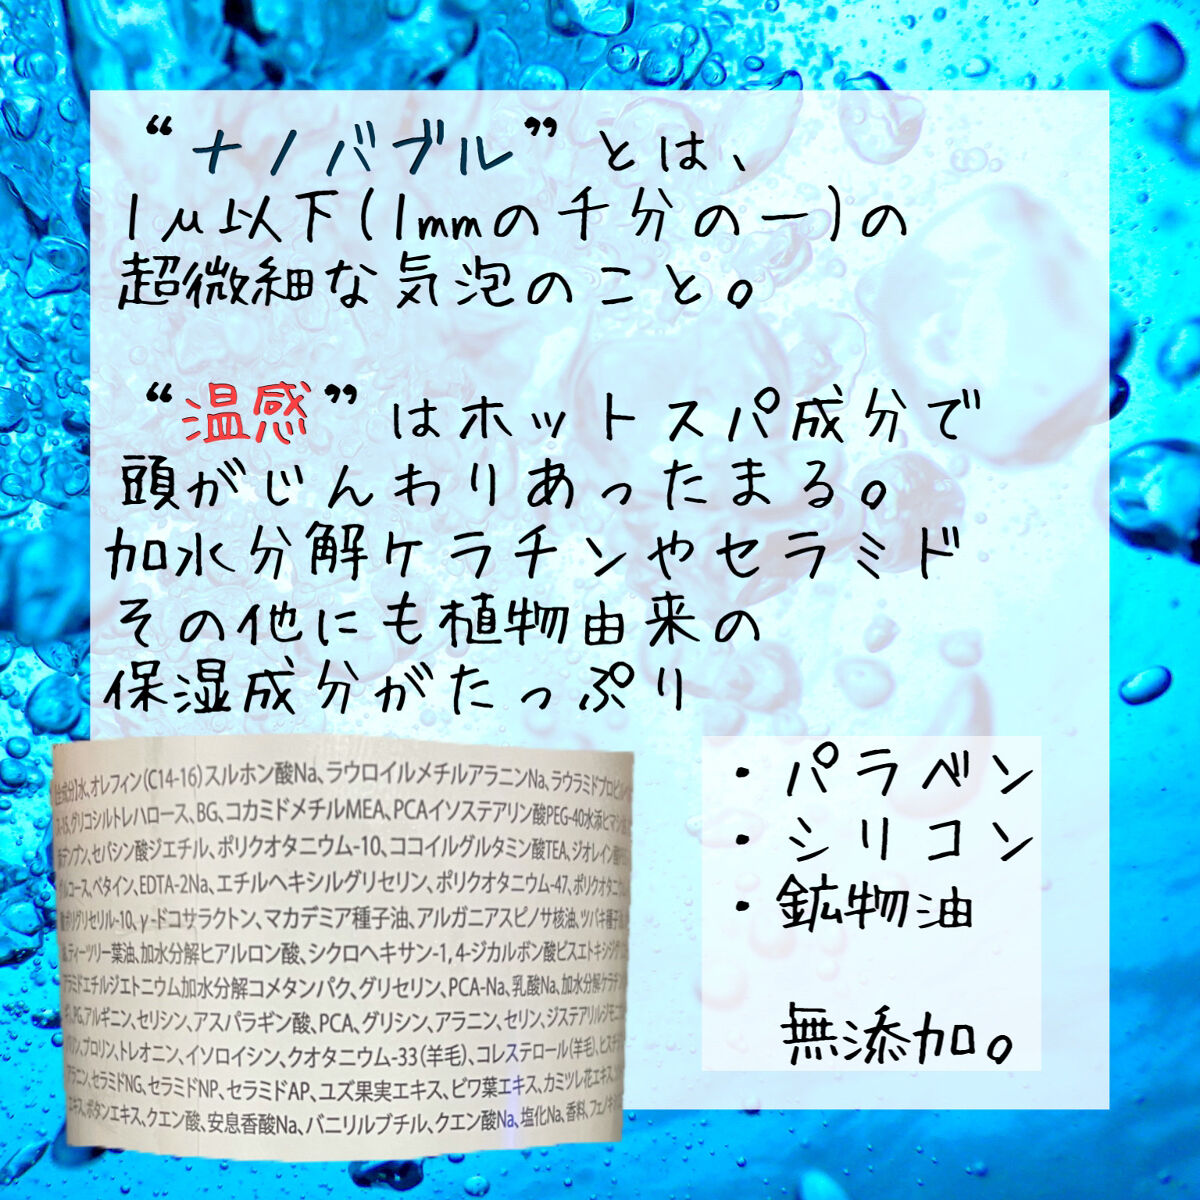 “ナノバブル”とは、
1μ以下(1mmの千分の一)の
超微細な気泡のこと。
“温感”はホットスパ成分で
頭がじんわりあったまる。
加水分解ケラチンやセラミド
その他にも植物由来の
保湿成分がたっぷり
・パラベン
・シリコン
・鉱物油
無添加。
成分】水、オレフィン(C14-16)スルホン酸Na、ラウロイルメチルアラニンNa、ラウラミドプロピル
グリコシルトレハロース、BG、コカミドメチルMEA、PCAイソステアリン酸PEG-40水添ヒマシ
デンプン、セバシン酸ジエチル、ポリクオタニウム-10、ココイルグルタミン酸TEA、ジオレイン酸
グルコース、ベタイン、EDTA-2Na、エチルヘキシルグリセリン、ポリクオタニウム-47、ポリクオタニウム
ポリグリセリル-10、γ-ドコサラクトン、マカデミア種子油、アルガニアスピノサ核油、ツバキ種子
ティーツリー葉油、加水分解ヒアルロン酸、シクロヘキサン-1, 4-ジカルボン酸ビスエトキシジグ
ラミドエチルジエトニウム加水分解コメタンパク、グリセリン、PCA-Na、乳酸Na、加水分解ケラチン
PG、アルギニン、セリシン、アスパラギン酸、PCA、グリシン、アラニン、セリン、ジステアリルジモニ
リン、プロリン、トレオニン、イソロイシン、クオタニウム-33(羊毛)、コレステロール(羊毛)、ヒスチジ
アラニン、セラミドNG、セラミドNP、セラミドAP、ユズ果実エキス、ビワ葉エキス、カミツレ花エキス、
エキス、ボタンエキス、クエン酸、安息香酸Na、バニリルブチル、クエン酸Na、塩化Na、香料、フェノキ